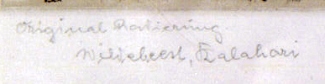 Original Radierung
Wildebeest, Kalahari